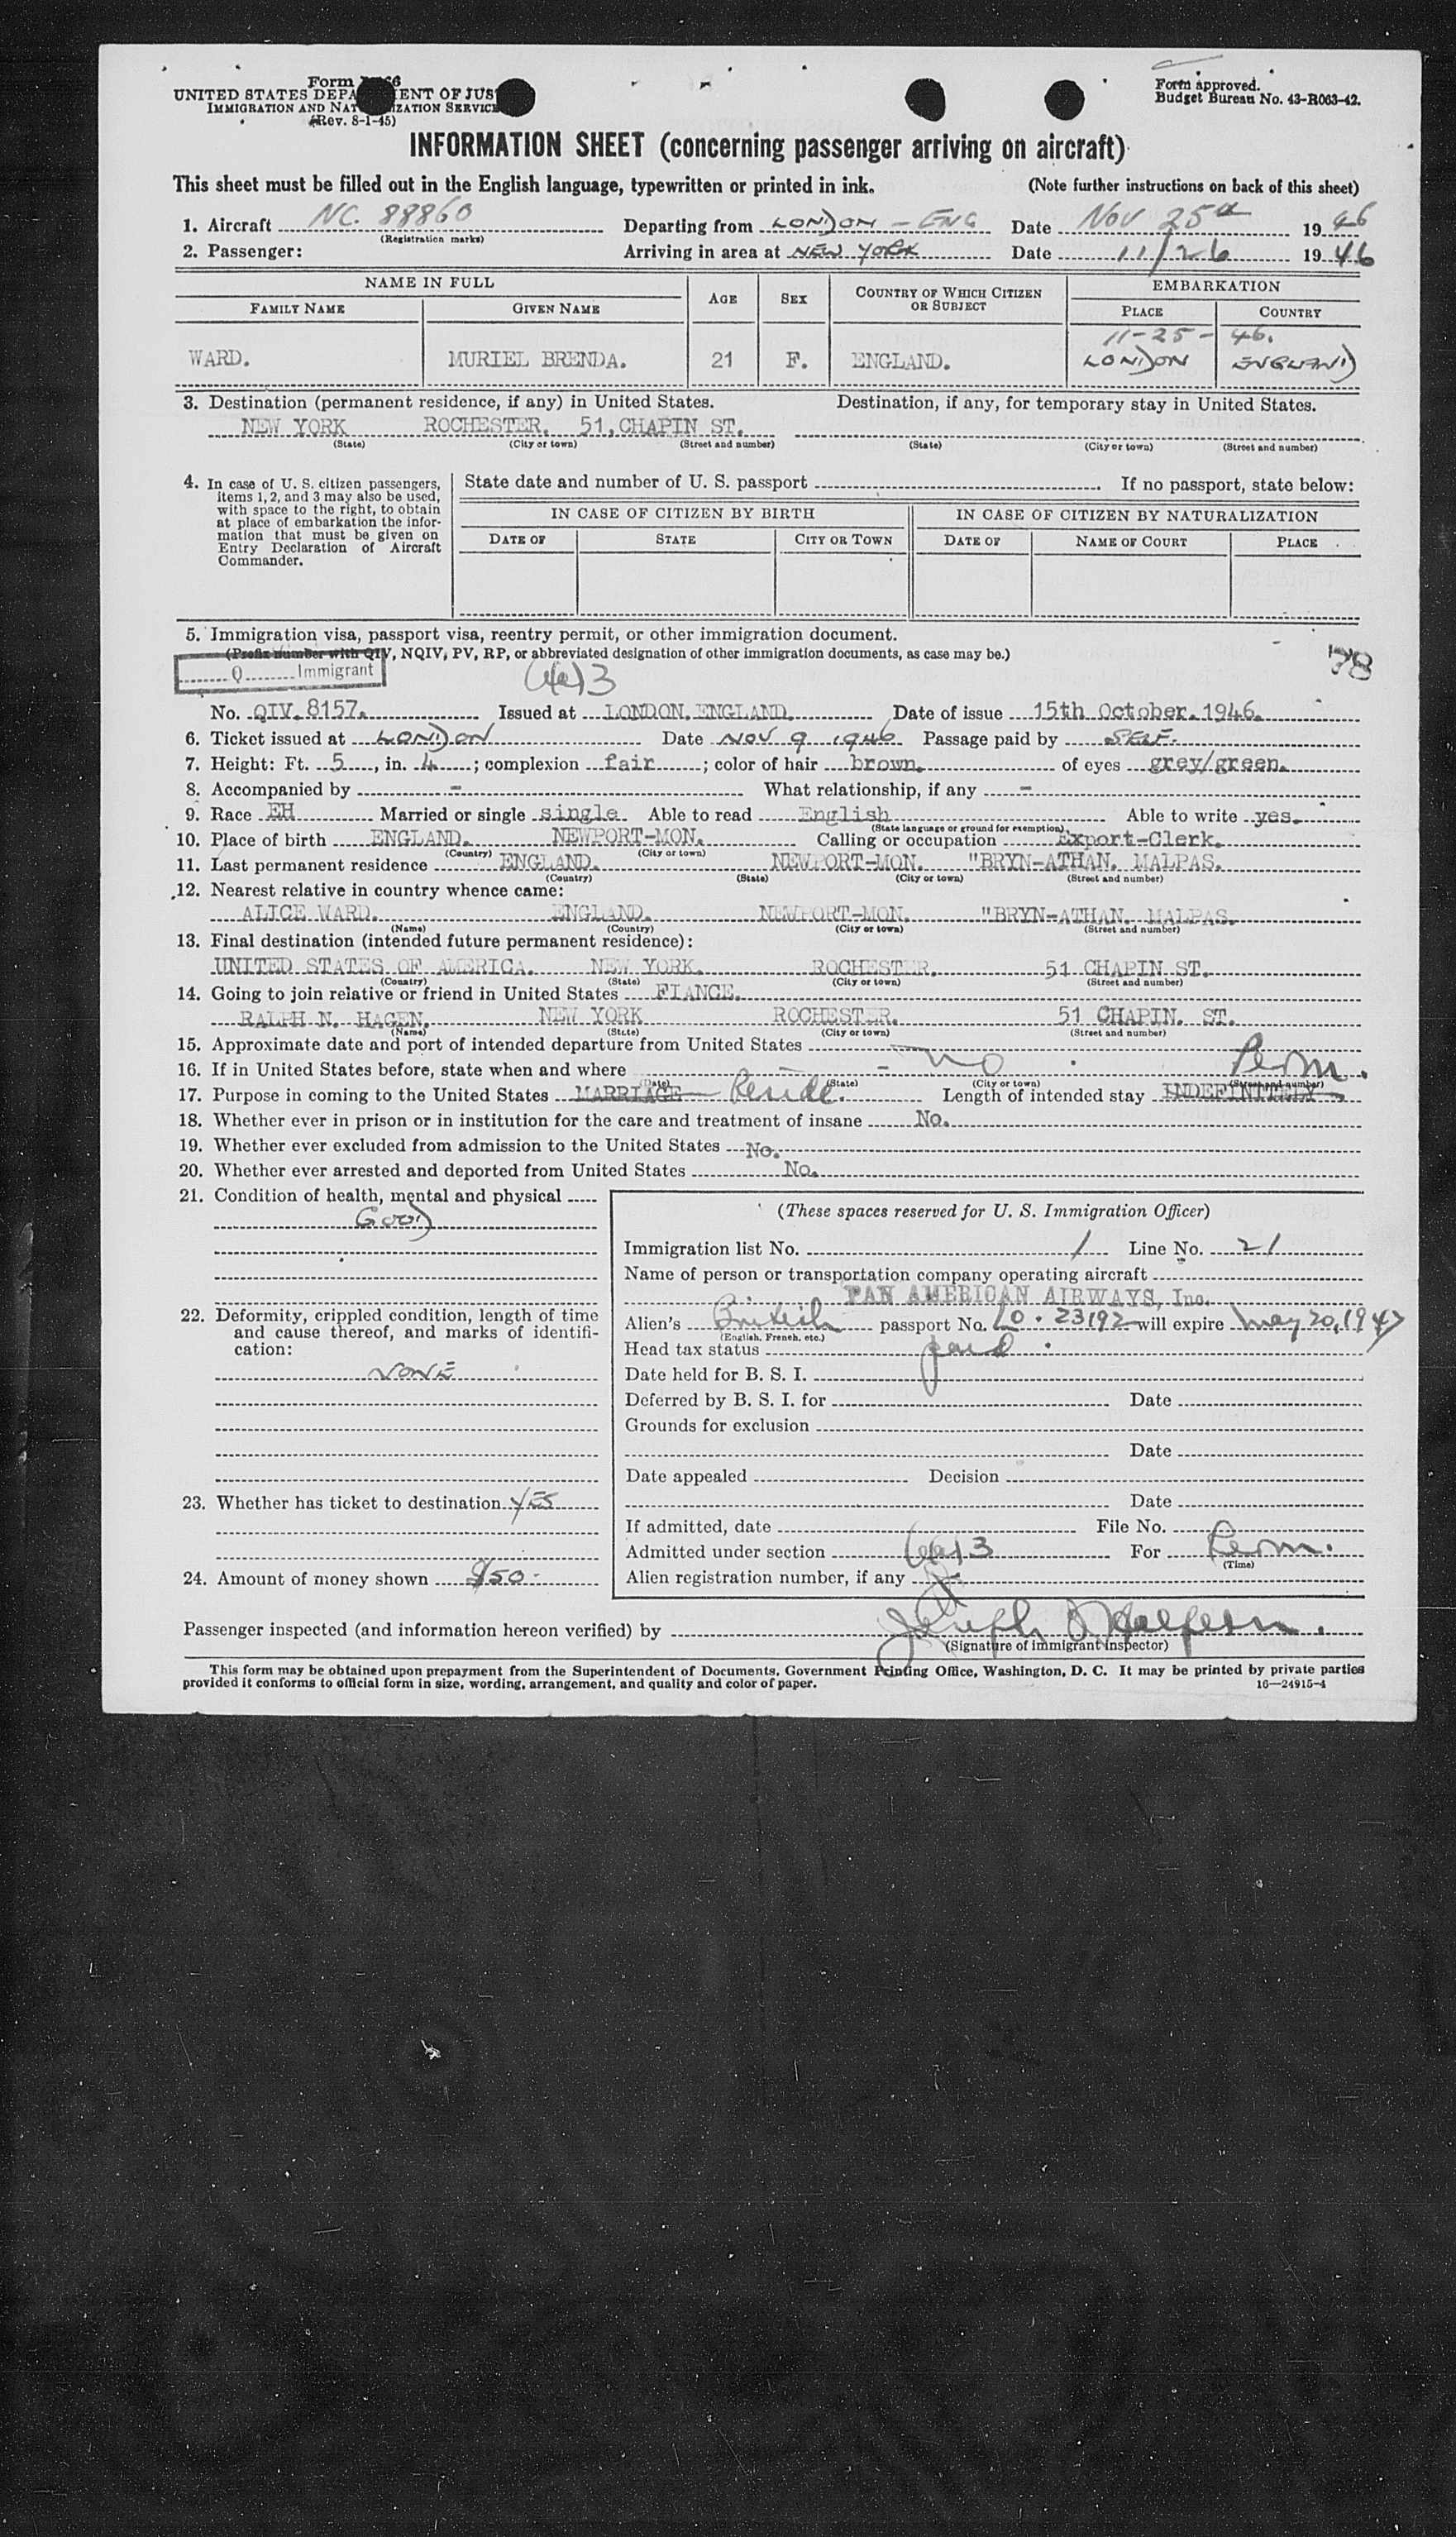 Form
UNITED STATES DEPA ENT OF JUS
IMMIGRATION AND NAT IZATION SERVICE
(Rev. 8-1-45)
Form approved.
Budget Bureau No. 43-R063-42.
INFORMATION SHEET (concerning passenger arriving on aircraft)
This sheet must be filled out in the English language, typewritten or printed in ink. (Note further instructions on back of this sheet)
1. Aircraft NC. 88860 Departing from LONDON - ENG Date Nov 25th 1946
(Registration marks)
2. Passenger: Arriving in area at NEW YORK Date 11/26 1946
NAME IN FULL AGE SEX COUNTRY OF WHICH CITIZEN OR SUBJECT EMBARKATION
FAMILY NAME GIVEN NAME PLACE COUNTRY
11-25-46.
WARD. MURIEL BRENDA. 21 F. ENGLAND. LONDON ENGLAND
3. Destination (permanent residence, if any) in United States. Destination, if any, for temporary stay in United States.
NEW YORK ROCHESTER. 51, CHAPIN ST.
(State) (City or town) (Street and number) (State) (City or town) (Street and number)
4. In case of U. S. citizen passengers, items 1, 2, and 3 may also be used, with space to the right, to obtain at place of embarkation the information that must be given on Entry Declaration of Aircraft Commander.
State date and number of U. S. passport If no passport, state below:
IN CASE OF CITIZEN BY BIRTH IN CASE OF CITIZEN BY NATURALIZATION
DATE OF STATE CITY OR TOWN DATE OF NAME OF COURT PLACE
5. Immigration visa, passport visa, reentry permit, or other immigration document.
(Prefix number with QIV, NQIV, PV, RP, or abbreviated designation of other immigration documents, as case may be.)
78
Q Immigrant
(6a)3
No. QIV. 8157. Issued at LONDON. ENGLAND. Date of issue 15th October. 1946.
6. Ticket issued at LONDON Date NOV 9 1946 Passage paid by SELF.
7. Height: Ft. 5, in. 4; complexion fair; color of hair brown. of eyes grey/green.
8. Accompanied by - What relationship, if any -
9. Race EH Married or single single Able to read English Able to write yes.
(State language or ground for exemption)
10. Place of birth ENGLAND. NEWPORT-MON. Calling or occupation Export-Clerk.
(Country) (City or town)
11. Last permanent residence ENGLAND. NEWPORT-MON. "BRYN-ATHAN. MALPAS.
(Country) (State) (City or town) (Street and number)
12. Nearest relative in country whence came:
ALICE WARD. ENGLAND. NEWPORT-MON. "BRYN-ATHAN. MALPAS.
(Name) (Country) (City or town) (Street and number)
13. Final destination (intended future permanent residence):
UNITED STATES OF AMERICA. NEW YORK. ROCHESTER. 51 CHAPIN ST.
(Country) (State) (City or town) (Street and number)
14. Going to join relative or friend in United States FIANCE.
RALPH N. HAGEN. NEW YORK ROCHESTER. 51 CHAPIN. ST.
(Name) (State) (City or town) (Street and number)
15. Approximate date and port of intended departure from United States
16. If in United States before, state when and where - no
(Date) (State) (City or town) (Street and number)
Perm.
17. Purpose in coming to the United States MARRIAGE Reside. Length of intended stay INDEFINITELY
18. Whether ever in prison or in institution for the care and treatment of insane No.
19. Whether ever excluded from admission to the United States No.
20. Whether ever arrested and deported from United States No.
21. Condition of health, mental and physical
GOOD
22. Deformity, crippled condition, length of time and cause thereof, and marks of identification:
NONE
23. Whether has ticket to destination YES
24. Amount of money shown $50-
(These spaces reserved for U. S. Immigration Officer)
Immigration list No. 1 Line No. 21
Name of person or transportation company operating aircraft
PAN AMERICAN AIRWAYS, Inc.
Alien's British passport No. LO. 23192 will expire May 20, 1947
(English, French, etc.)
Head tax status paid
Date held for B. S. I.
Deferred by B. S. I. for Date
Grounds for exclusion
Date
Date appealed Decision
Date
If admitted, date File No.
Admitted under section (6a)3 For Perm.
(Time)
Alien registration number, if any
Passenger inspected (and information hereon verified) by Joseph Halpern.
(Signature of immigrant inspector)
This form may be obtained upon prepayment from the Superintendent of Documents, Government Printing Office, Washington, D. C. It may be printed by private parties
provided it conforms to official form in size, wording, arrangement, and quality and color of paper. 16—24915-4